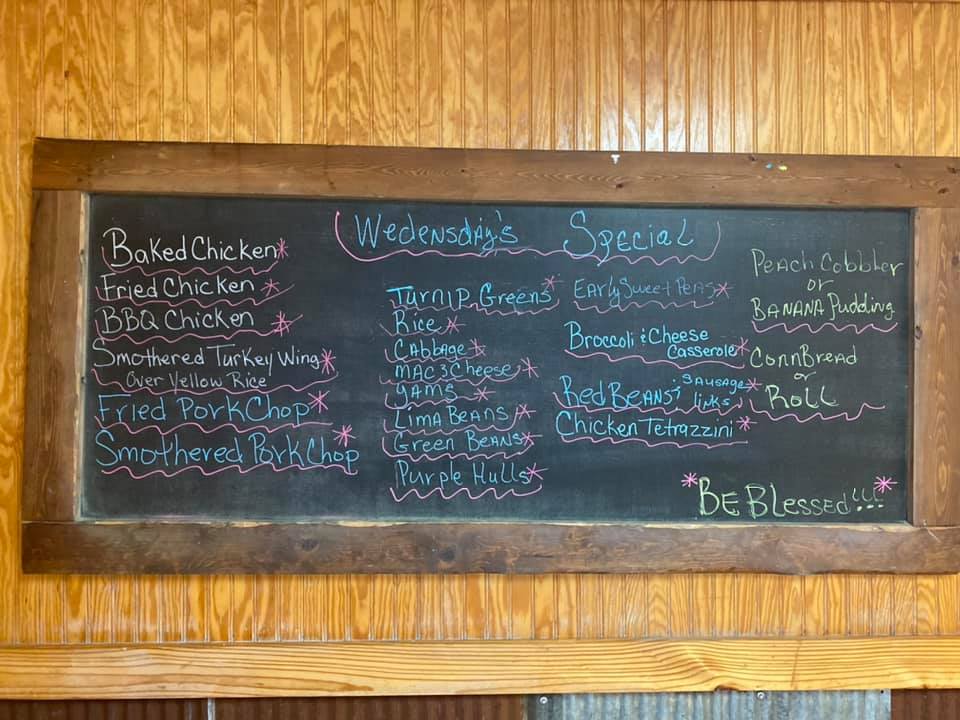 Wedensday's Special
Baked Chicken*
Fried Chicken *
BBQ Chicken *
Smothered Turkey Wing*
Over Yellow Rice
Fried Pork Chop*
Smothered Pork Chop*
Turnip Greens*
Rice*
Cabbage*
Mac 3 Cheese*
Yams *
Lima Beans*
Green Beans*
Purple Hulls*
Early Sweet Peas*
Broccoli & Cheese
Casserole*
Red Beans & Sausage*
links
Chicken Tetrazzini*
Peach Cobbler
or
Banana Pudding
CornBread
or
Roll
*Be Blessed!!!*